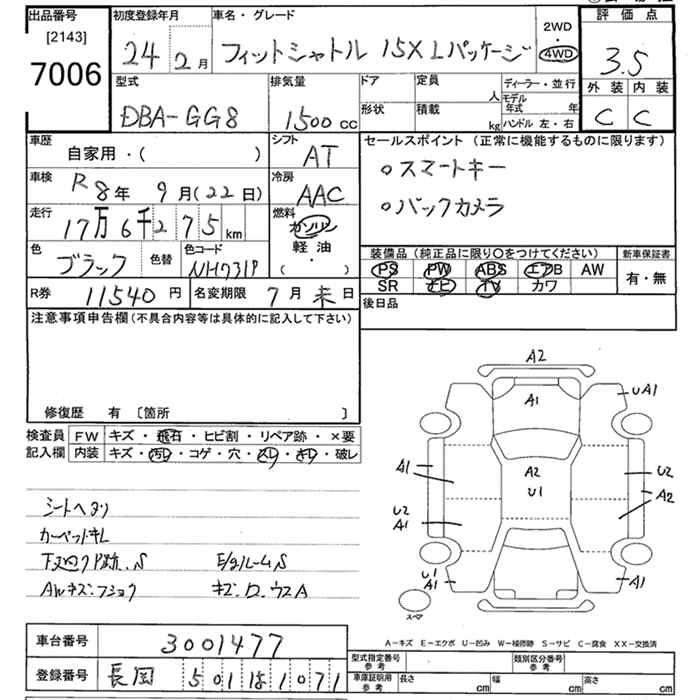 出品番号
[2143]
7006
初度登録年月
24年2月
車名・グレード
フィットシャトル 15X Lパッケージ
2WD
4WD
評価点
3.5
外装 内装
C C
型式
DBA-GG8
排気量
1500cc
ドア
形状
定員 人
積載 kg
ディーラー・並行
モデル年式 年
ハンドル 左・右
車歴
自家用・( )
シフト
AT
車検
R8年9月(22日)
冷房
AAC
走行
17万6千275km
燃料
ガソリン
軽油
( )
色
ブラック
色替
色コード
NH731P
セールスポイント (正常に機能するものに限ります)
○スマートキー
○バックカメラ
装備品 (純正品に限り○をつけてください)
PS PW ABS エアB AW
SR ナビ TV カワ
新車保証書
有・無
R券 11540円
名変期限 7月末日
後日品
注意事項申告欄(不具合内容等は具体的に記入して下さい)
修復歴 有 [箇所 ]
検査員記入欄
FW キズ・飛石・ヒビ割・リペア跡・×要
内装 キズ・汚レ・コゲ・穴・スレ・キレ・破レ
シートヘタリ
カーペットキレ
下廻り P跡、S
E/gルームS
AWキズ・フショク
キズ.ロ.ウスA
A2
A1
UA1
A2
U1
A1
U2
A2
U2
A1
U1
A1
A1
スペア
A-キズ E-エクボ U-凹み W-補修跡 S-サビ C-腐食 XX-交換済
車台番号
3001477
登録番号
長岡 501 は 1071
型式指定番号
参考
類別区分番号
参考
車庫証明用
参考
長さ cm 幅 cm 高さ cm